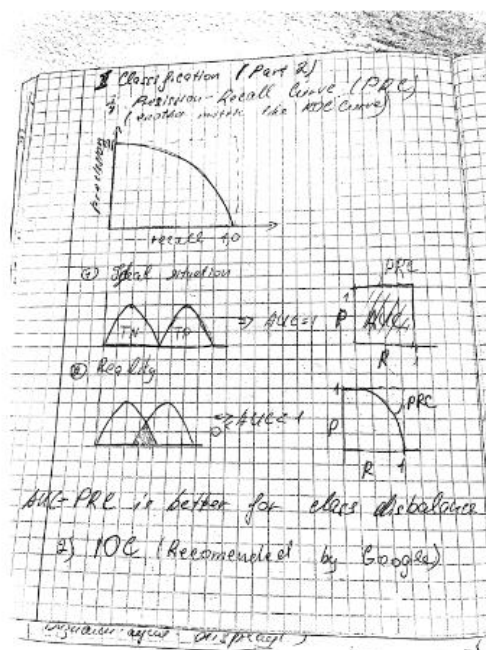 II Classification (Part 2)
1) Precision-Recall Curve (PRC)
(another metric like ROC Curve)
precision
recall 1,0
① Ideal situation
TN TP => AUC=1
PRC
1
P AUC
R 1
② Reality
1
PRC
P
R 1
AUC-PRC is better for class disbalance
2) IOC (Recomended by Google)